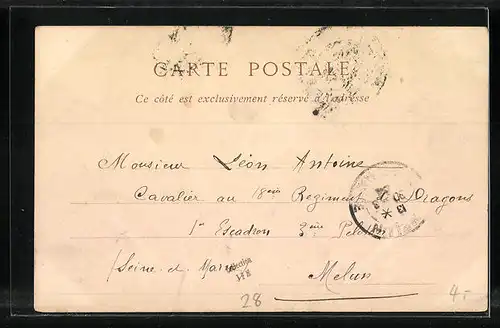 CARTE POSTALE
Ce côté est exclusivement réservé à l'adresse
Monsieur Léon Antoine
Cavalier au 18eme Regiment de Dragons
1er Escadron 3eme Peloton
/Seine-et-Marne
Melun
28
4.-